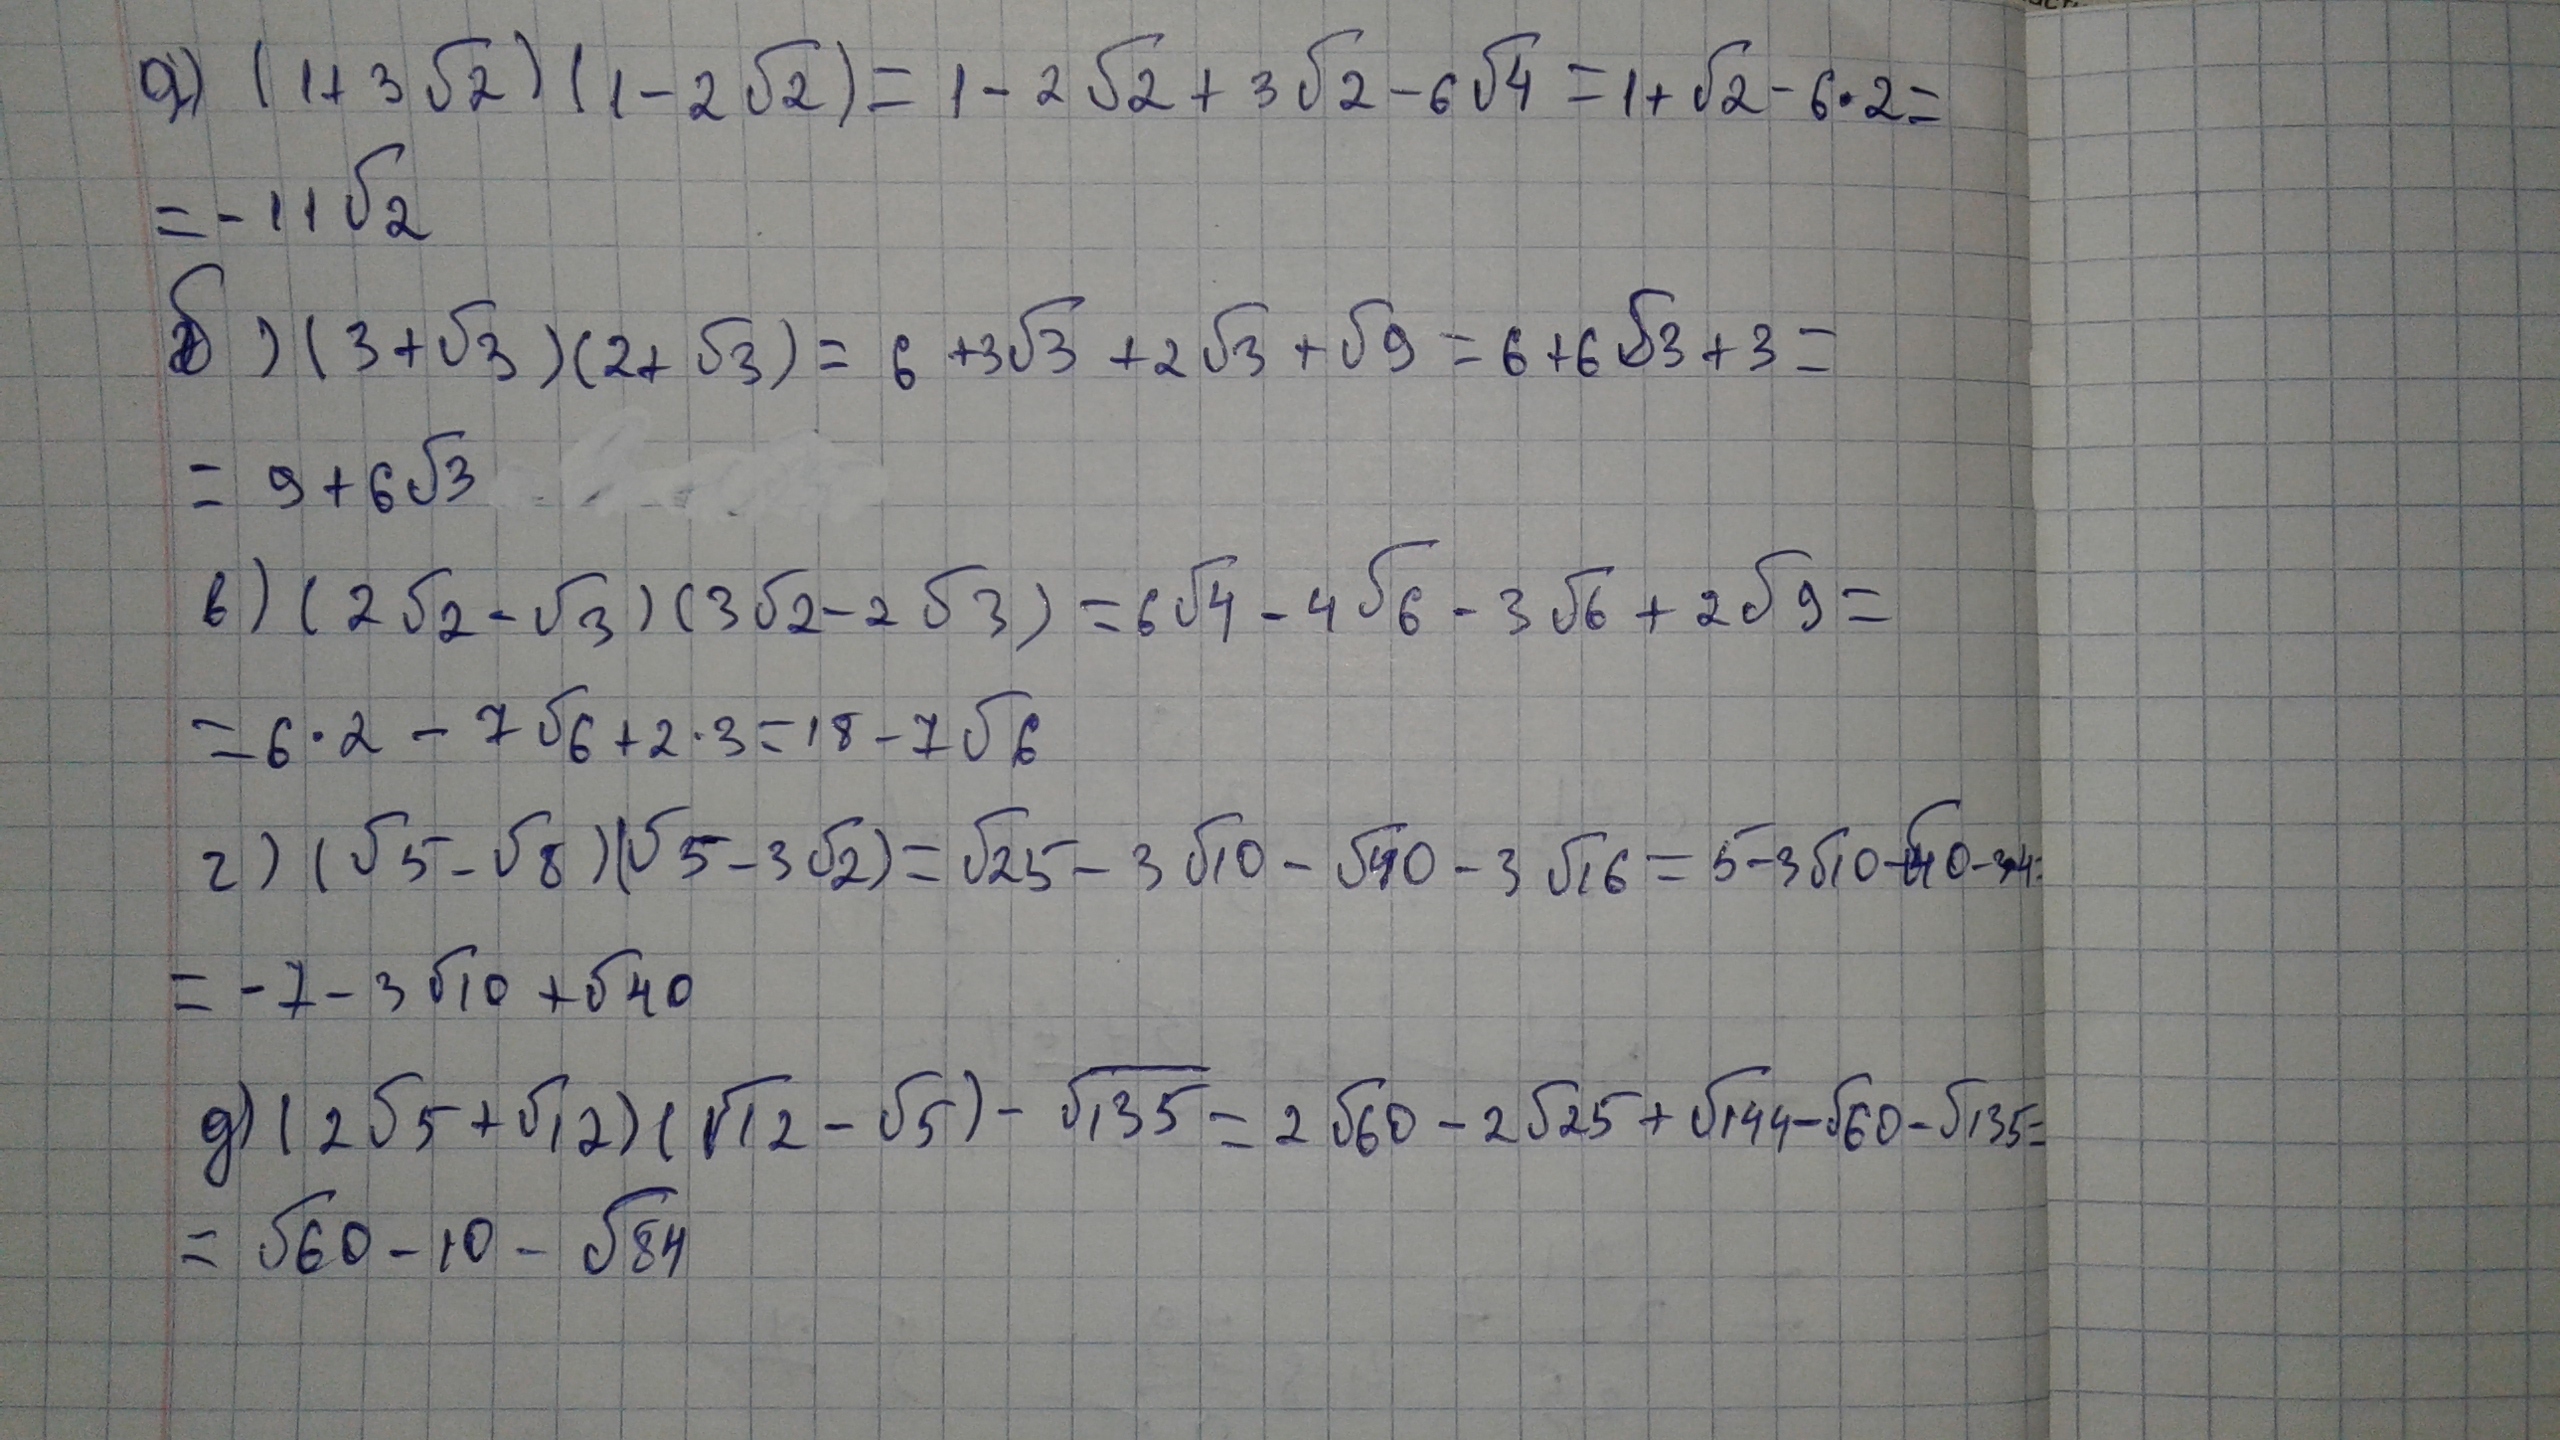 а) (1+3√2)(1-2√2)=1-2√2+3√2-6√4=1+√2-6·2=
=-11√2
б) (3+√3)(2+√3)=6+3√3+2√3+√9=6+6√3+3=
=9+6√3
в) (2√2-√3)(3√2-2√3)=6√4-4√6-3√6+2√9=
=6·2-7√6+2·3=18-7√6
г) (√5-√8)(√5-3√2)=√25-3√10-√40-3√16=5-3√10-√40-3·4=
=-7-3√10+√40
д) (2√5+√12)(√12-√5)-√135=2√60-2√25+√144-√60-√135=
=√60-10-√84